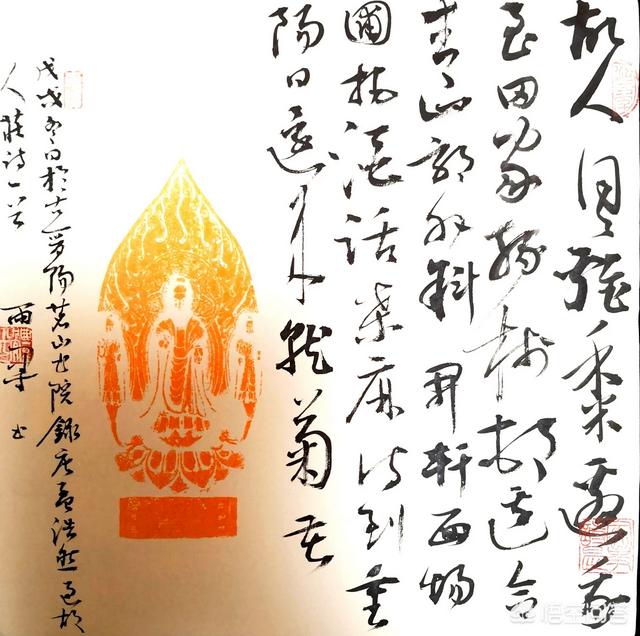 故人具雞黍邀我
至田家綠樹村邊合
青山郭外斜開軒面場
圃把酒話桑麻待到重
陽日還來就菊花
戊戌冬日於古陽茗山书院錄唐孟浩然過故
人莊詩一首
书
悟空问答